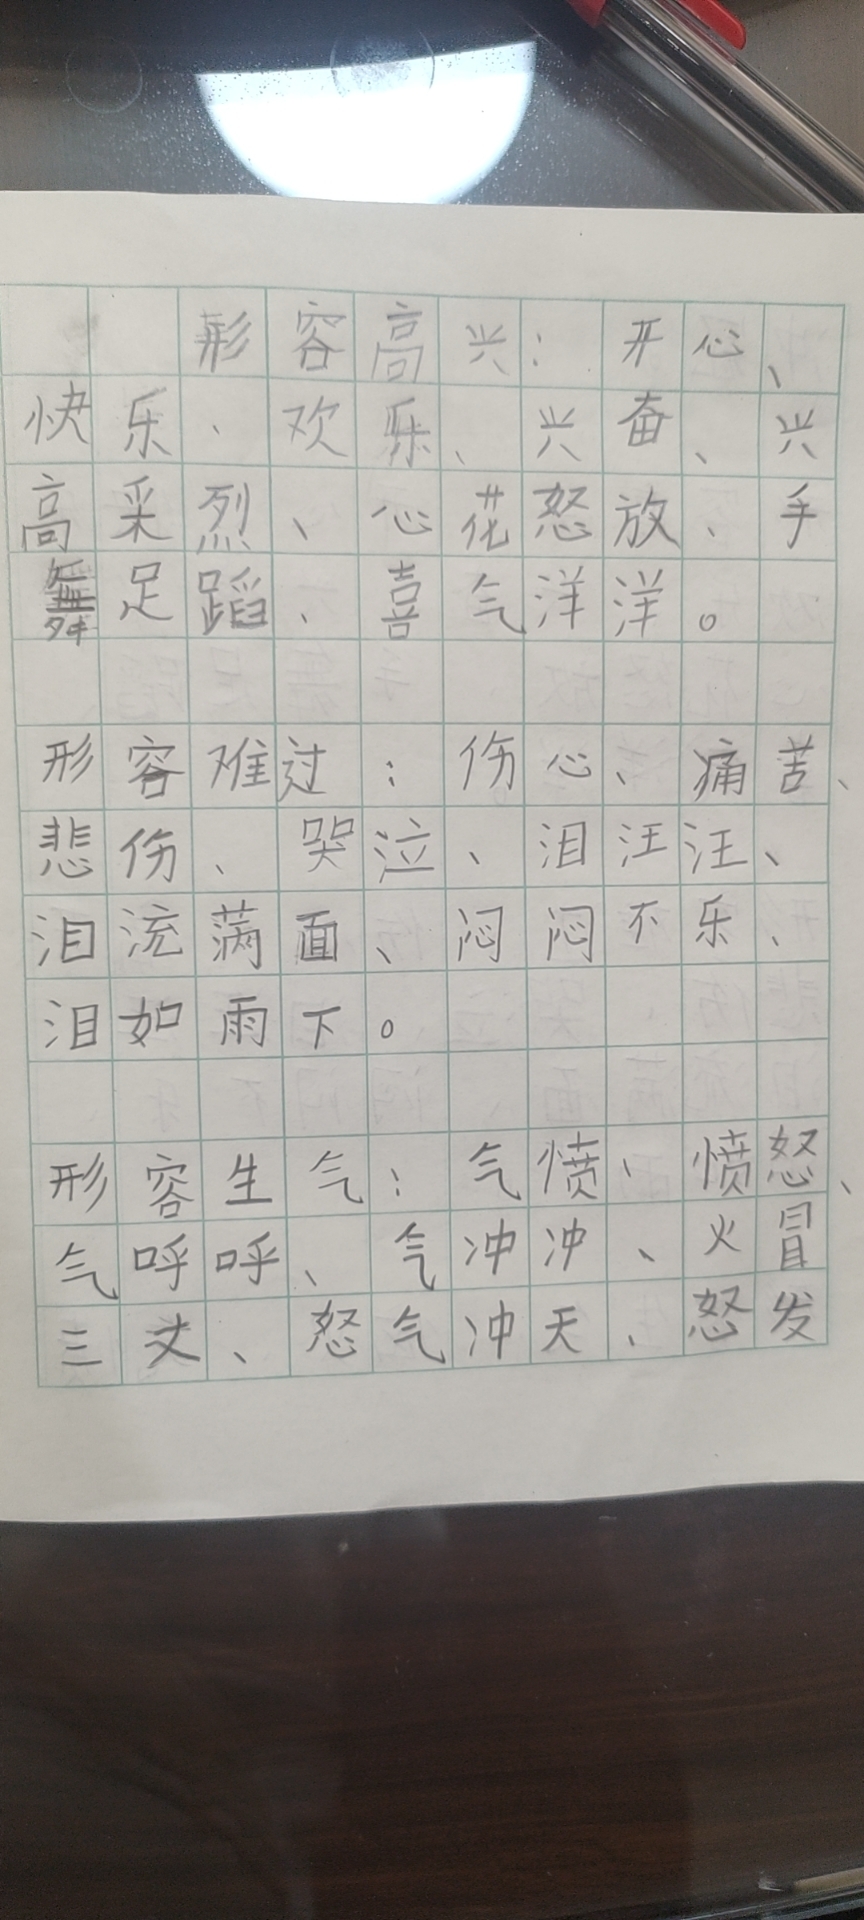 形容高兴：开心、
快乐、欢乐、兴奋、兴
高采烈、心花怒放、手
舞足蹈、喜气洋洋。
形容难过：伤心、痛苦、
悲伤、哭泣、泪汪汪、
泪流满面、闷闷不乐、
泪如雨下。
形容生气：气愤、愤怒、
气呼呼、气冲冲、火冒
三丈、怒气冲天、怒发